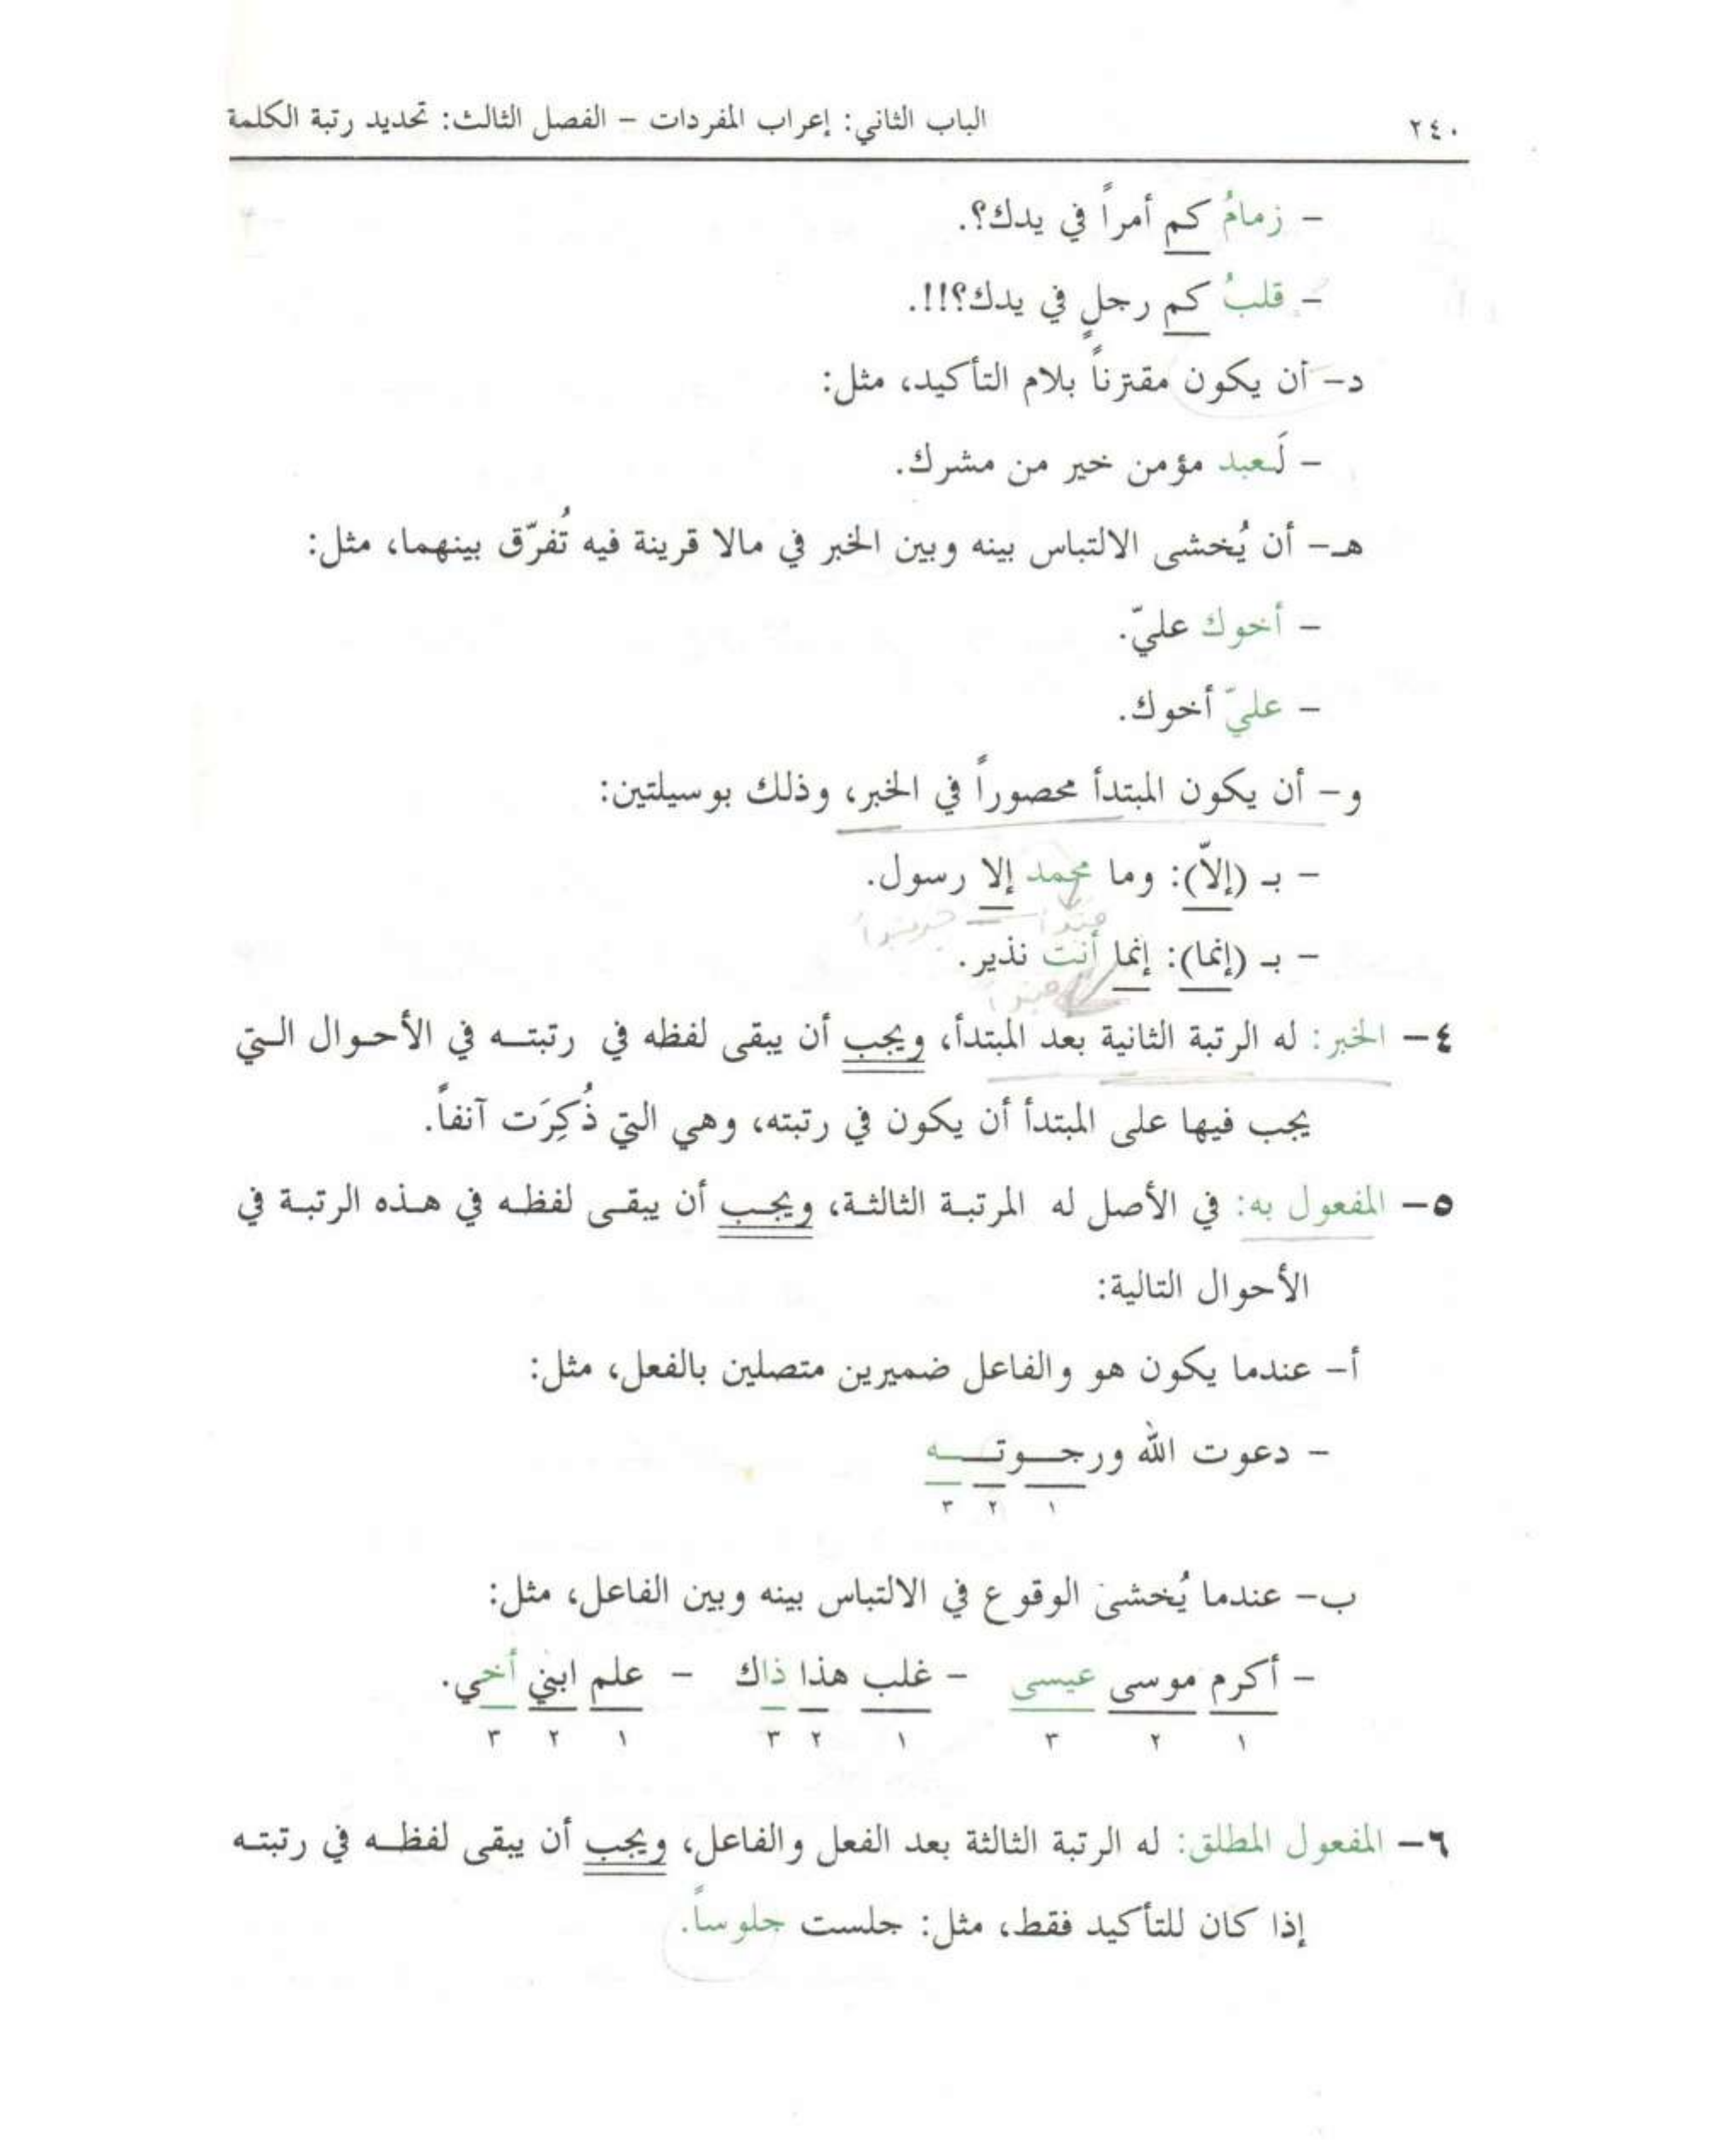 ٢٤٠ الباب الثاني: إعراب المفردات – الفصل الثالث: تحديد رتبة الكلمة
– زمامُ كم أمراً في يدك؟.
– قلبُ كم رجلٍ في يدك؟!!.
د– أن يكون مقترناً بلام التأكيد، مثل:
– لَعبد مؤمن خير من مشرك.
هـ– أن يُخشى الالتباس بينه وبين الخبر في مالا قرينة فيه تُفرّق بينهما، مثل:
– أخوك عليّ.
– عليّ أخوك.
و– أن يكون المبتدأ محصوراً في الخبر، وذلك بوسيلتين:
– بـ (إلاّ): وما محمد إلا رسول.
مبتدأ
– بـ (إنما): إنما أنت نذير.
مبتدأ
٤– الخبر: له الرتبة الثانية بعد المبتدأ، ويجب أن يبقى لفظه في رتبتـه في الأحـوال الـتي
يجب فيها على المبتدأ أن يكون في رتبته، وهي التي ذُكِرَت آنفاً.
٥– المفعول به: في الأصل له المرتبـة الثالثـة، ويجـب أن يبقـى لفظـه في هـذه الرتبـة في
الأحوال التالية:
أ– عندما يكون هو والفاعل ضميرين متصلين بالفعل، مثل:
– دعوت الله ورجـــوتــــه
١ ٢ ٣
ب– عندما يُخشى الوقوع في الالتباس بينه وبين الفاعل، مثل:
– أكرم موسى عيسى – غلب هذا ذاك – علم ابني أخي.
١ ٢ ٣ ١ ٢ ٣ ١ ٢ ٣
٦– المفعول المطلق: له الرتبة الثالثة بعد الفعل والفاعل، ويجب أن يبقى لفظـه في رتبتـه
إذا كان للتأكيد فقط، مثل: جلست جلوساً.